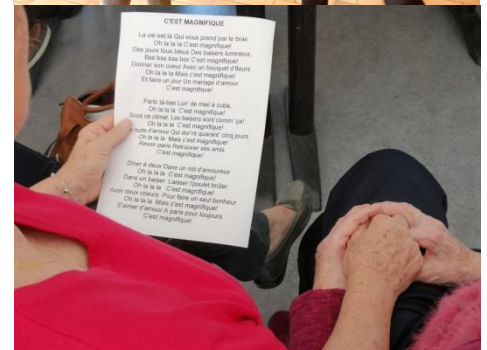 C'EST MAGNIFIQUE
La vie est là Qui vous prend par le bras
Oh la la la C'est magnifique!
Des jours tous bleus Des baisers lumineux,
Bas bas bas bas C'est magnifique!
Donner son coeur Avec un bouquet d'fleurs
Oh la la la Mais c'est magnifique!
Et faire un jour Un mariage d'amour
C'est magnifique!
Partir là-bas Lun' de miel à cuba,
Oh la la la C'est magnifique!
Sous ce climat, Les baisers sont comm' ça!
Oh la la la C'est magnifique!
nuits d'amour Qui dur'nt quarant' cinq jours
Oh la la la Mais c'est magnifique!
Revoir paris Retrouver ses amis
C'est magnifique!
Dîner à deux Dans un nid d'amoureux
Oh la la la C'est magnifique!
Dans un baiser Laisser l'poulet brûler
Oh la la la C'est magnifique!
Avoir deux coeurs Pour faire un seul bonheur
Oh la la la Mais c'est magnifique!
S'aimer d'amour A paris pour toujours
C'est magnifique!